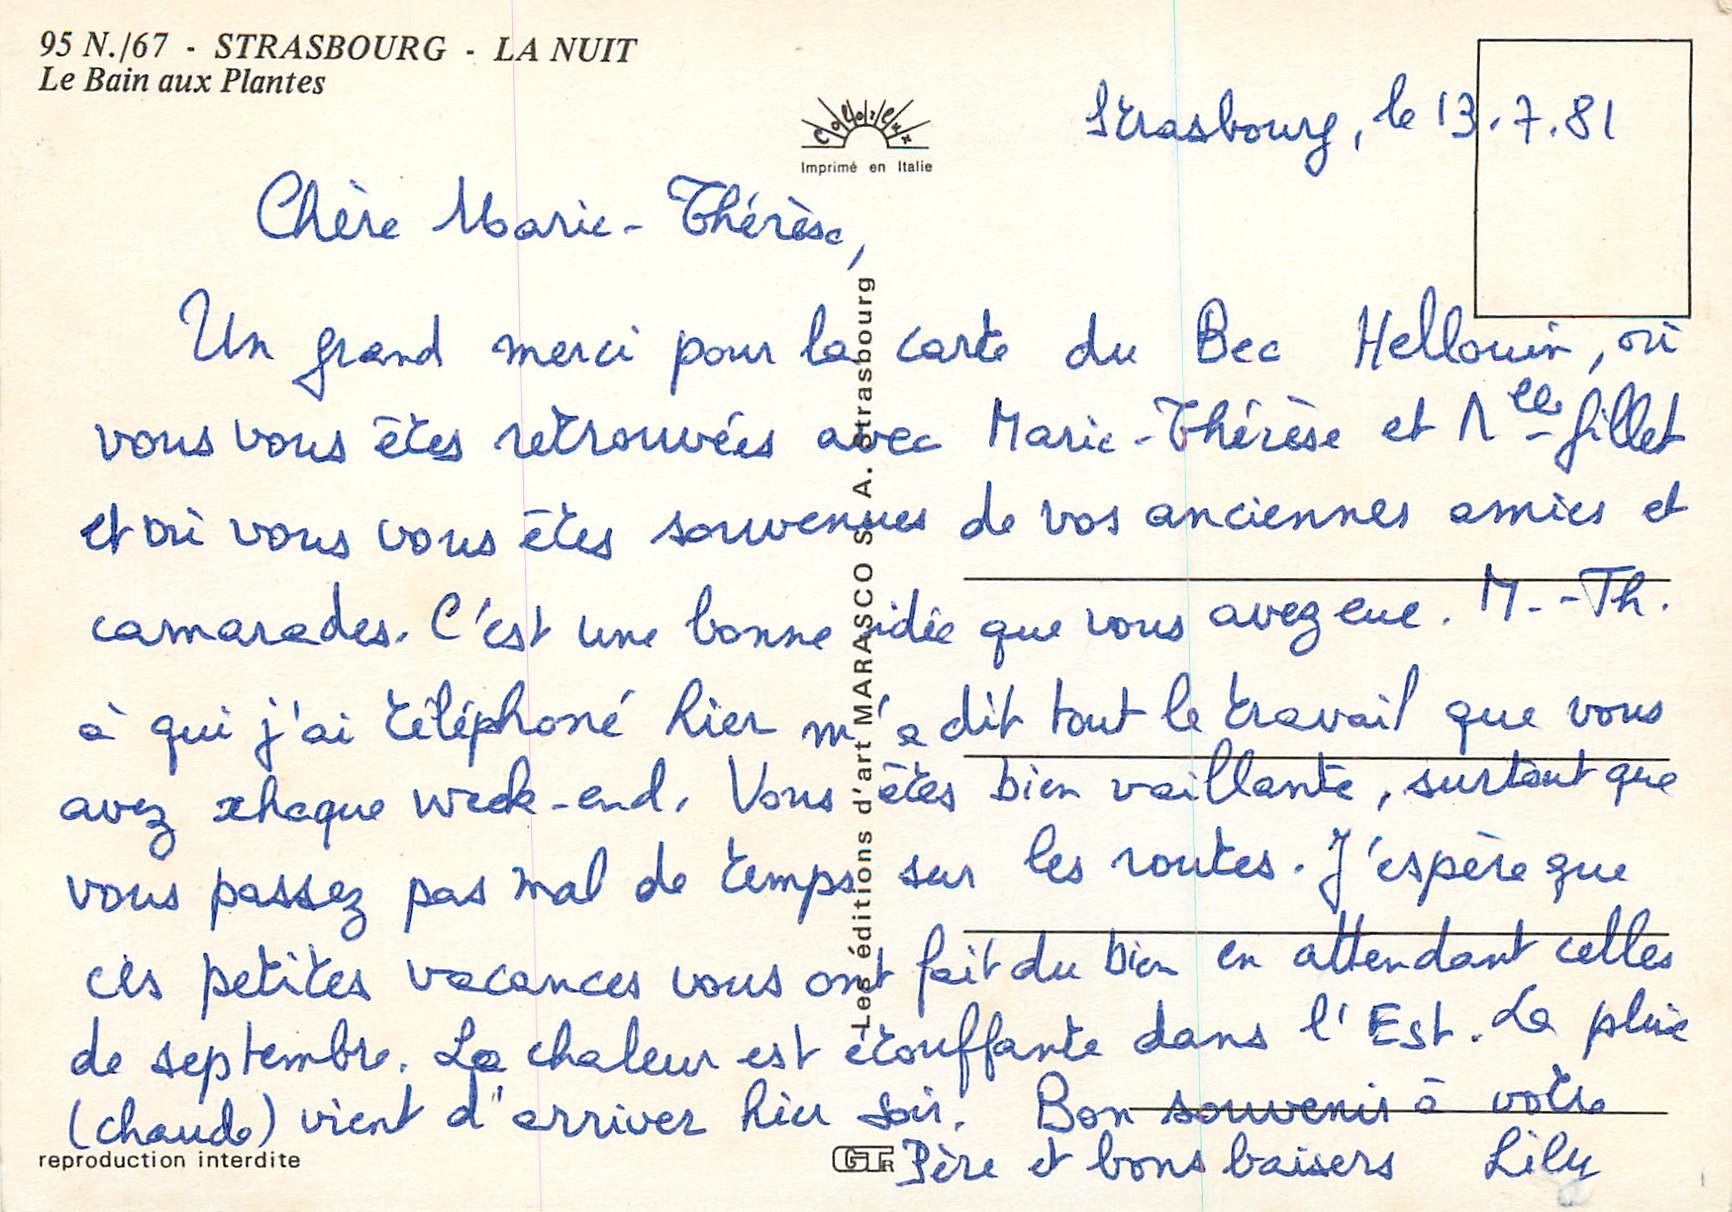 95 N./67 - STRASBOURG - LA NUIT
Le Bain aux Plantes
Colorlux
Imprimé en Italie
Strasbourg, le 13.7.81
Chère Marie-Thérèse,
Un grand merci pour la carte du Bec Hellouin, où
vous vous êtes retrouvées avec Marie-Thérèse et Mlle fillet
et où vous vous êtes souvenues de vos anciennes amies et
camarades. C'est une bonne idée que vous avez eue. M.-Th.
à qui j'ai téléphoné hier m'a dit tout le travail que vous
avez chaque week-end. Vous êtes bien vaillante, surtout que
vous passez pas mal de temps sur les routes. J'espère que
ces petites vacances vous ont fait du bien en attendant celles
de septembre. La chaleur est étouffante dans l'Est. La pluie
(chaude) vient d'arriver hier soir. Bon souvenir à votre
Père et bons baisers Lily
Les éditions d'art MARASCO S. A. Strasbourg
reproduction interdite